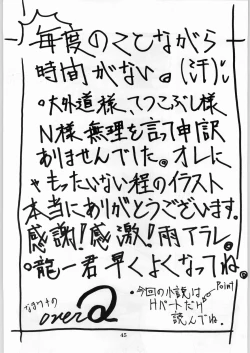 毎度のことながら
時間がない。(汗)
○大外道様、てつこぶし様
N様 無理を言って申訳
ありませんでした。オレに
ゃもったいない程のイラスト
本当にありがとうございます。
感謝!感激!雨アラレ。
○龍一君早くよくなってね。
・今回の小説は、Point
Hパートだけ
読んでね。
over
45